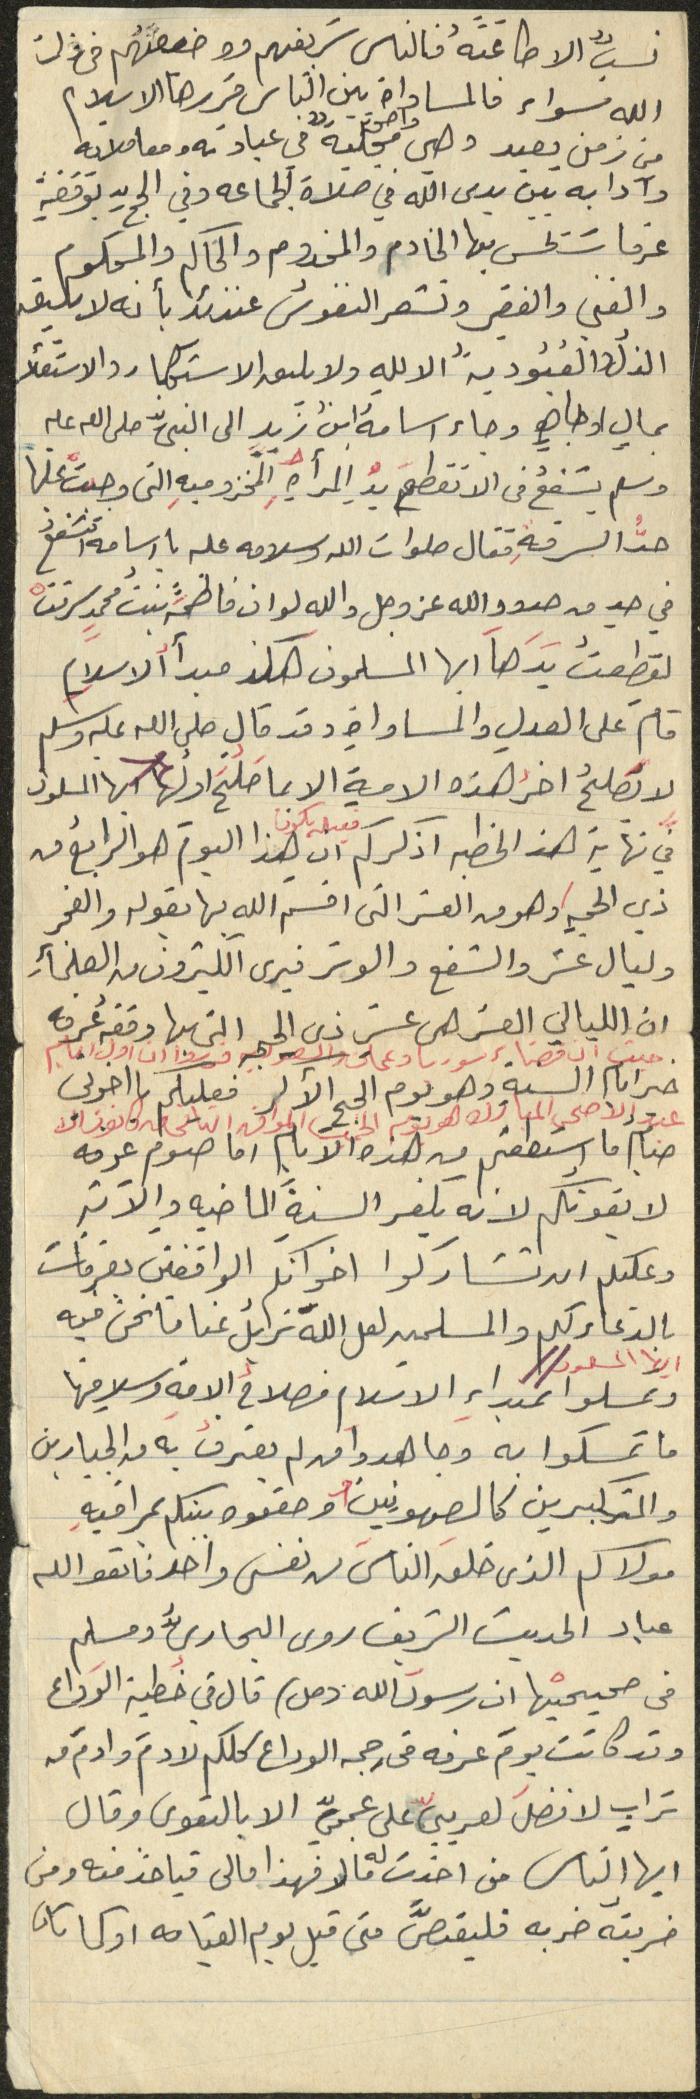 نسبٌ الا طاعَتَهُ فالناس شريفهم ووضيعهم في ذات
الله سواء فالمساواة بين الناس قررها الاسلام
من زمن بعيد وهي واضحة متجلية في عباداته ومعاملاته
وآدابه بين يدي الله في صلاة الجماعه وفي الحج يوم وقفة
عرفا ستحس بها الخادم والمخدوم والحاكم والمحكوم
والغني والفقير وتشعر النفوس عندئذ بأنه لا يليق
الذل والعُبُودية الا لله ولا يليق الاستكبار والاستعلاء
بمالٍ او جاهٍ وجاء اسامة ابن زيد الى النبي صلى الله عليه
وسلم يشفعُ في الا تقطع يدُ المرأة المخزوميةِ التي وجبت عليها
حدُّ السرقةِ فقال صلوات الله وسلامه عليه يا اسامه اتشفعُ
في حد من حدود الله عز وجل والله لو ان فاطمةَ بنتُ محمدٍ سرقتْ
لقطعتُ يَدَها ايها المسلمون هكذا مبدأُ الاسلامِ
قام على العدلِ والمساواةِ وقد قال صلى الله عليه وسلم
لا يصلحُ اخرُ هذه الامة الا بما صلُحَ اولُها ايها المسلمون
في نهاية هذه الخطبه اذكركم ان هذا اليوم هو الرابعُ من
ذي الحجةِ وهو من العشر التي اقسم الله بها بقوله والفجر
وليال عشر والشفع والوتر فيرى الكثيرون من العلماءِ
ان الليالي العشر هي عشر ذي الحجه التي بها وقفه عُرفه
حيث ان قضاء سوريا وعمان والسعوديه قرروا ان اول ايام
خير ايام السنة وهو يوم الحج الأكبر فعليكم يا اخوتي
عيد الاضحى المبارك هو يوم الموافق
صيام ما استطعتم من هذه الايام اما صوم عرفه
لا يفوتُكم لانه يكفر السنةَ الماضيه والآتيه
وعليكم ان تشاركوا اخوانكم الواقفين بعرفات
بالدعاء لكم والمسلمين لعل اللهَ يزيلُ عنا ما نحن فيه
ايها المسلمون
وتمسكوا بمبداءِ الاسلام فصلاحُ الامةِ وسلامتها
ما تمسكوا به وجاهدوا من لم يعترف به من الجبارين
والمتكبرين كالصهيونيين وحققوه بينكم بمراقبةِ
مولاكم الذي خلق الناسَ من نفس واحدة فاتقوا الله
عباد الحديث الشريف روى البخاريُّ ومسلم
في صحيحيْها ان رسولَ الله (صل) قال في خُطبة الوداع
وقد كانت يوم عرفه في حجه الوداع كلكم لادمَ وادمَ من
ترابٍ لا فضل لعربيٍّ على عجميٍّ الا بالتقوى وقال
ايها الناس من اخذت له مالا فهذا مالي فياخذ منه ومن
ضربته ضربه فليقتصَّ مني قبل يوم القيامه او كما قال